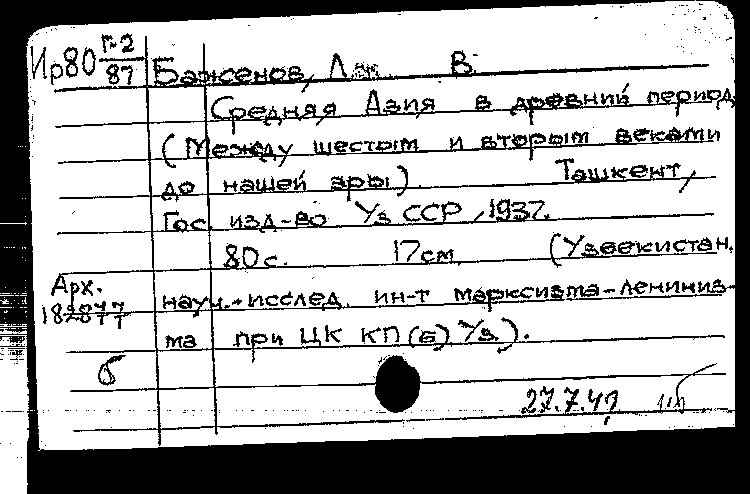 Ир80 п-2/87 Баженов, Л. В.
Средняя Азия в древний период
(Между шестым и вторым веками
до нашей эры). Ташкент,
Гос. изд-во Уз ССР, 1937.
80 с. 17 см (Узбекистан.
Арх. 182077
науч.-исслед. ин-т марксизма-ленинiз-
ма при ЦК КП(б) Уз.).
б
27.7.49